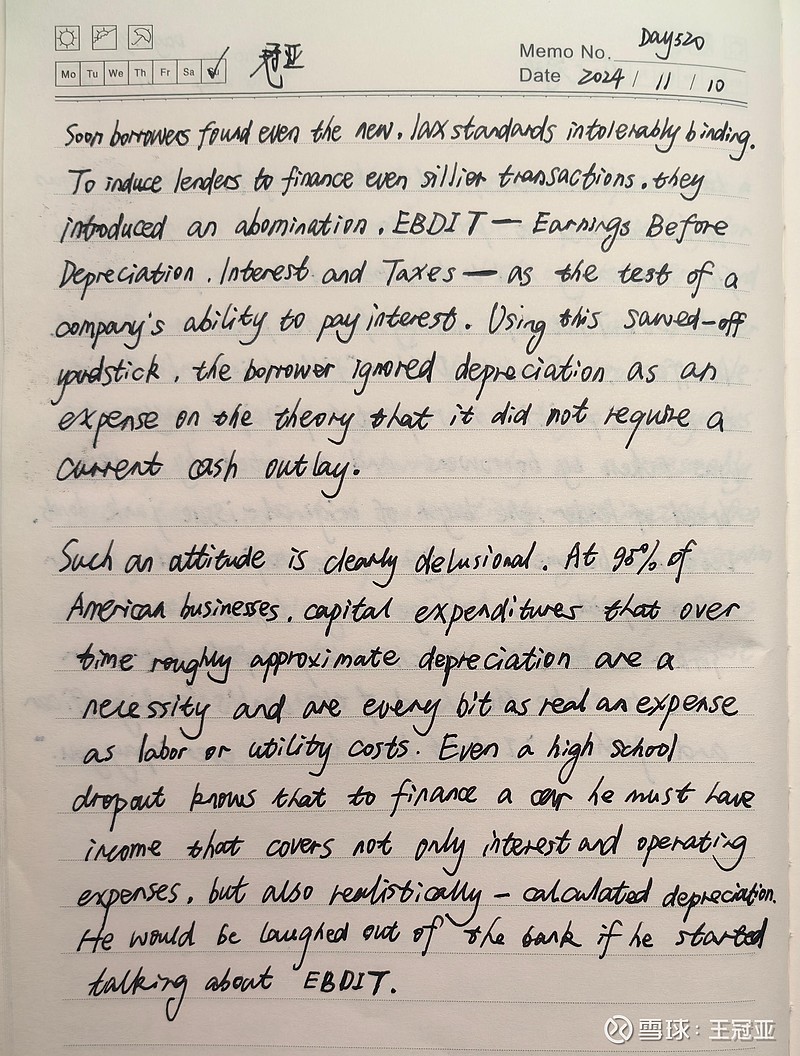 Day520
Memo No.
Mo Tu We Th Fr Sa Su
冠亚
Date 2024 / 11 / 10
Soon borrowers found even the new, lax standards intolerably binding.
To induce lenders to finance even sillier transactions, they
introduced an abomination, EBDIT — Earnings Before
Depreciation, Interest and Taxes — as the test of a
company's ability to pay interest. Using this sawed-off
yardstick, the borrower ignored depreciation as an
expense on the theory that it did not require a
current cash outlay.
Such an attitude is clearly delusional. At 95% of
American businesses, capital expenditures that over
time roughly approximate depreciation are a
necessity and are every bit as real an expense
as labor or utility costs. Even a high school
dropout knows that to finance a car he must have
income that covers not only interest and operating
expenses, but also realistically - calculated depreciation.
He would be laughed out of the bank if he started
talking about EBDIT.
雪球：王冠亚